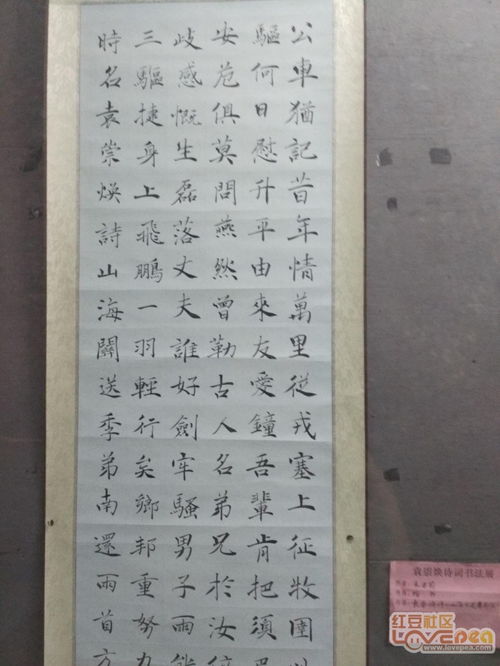 公車猶記昔年情萬里從戎塞上征牧圉
驅何日慰升平由來友愛鐘吾輩肯把須
安危俱莫問燕然曾勒古人名弟兄於汝
歧感慨生磊落丈夫誰好劍牢騷男子爾能
三驅捷身上飛鵬一羽輕行矣鄉邦重努力
時名袁崇煥詩山海關送季弟南還兩首方
袁崇焕诗词书法展
红豆社区
Lovepea
www.lovepea.com